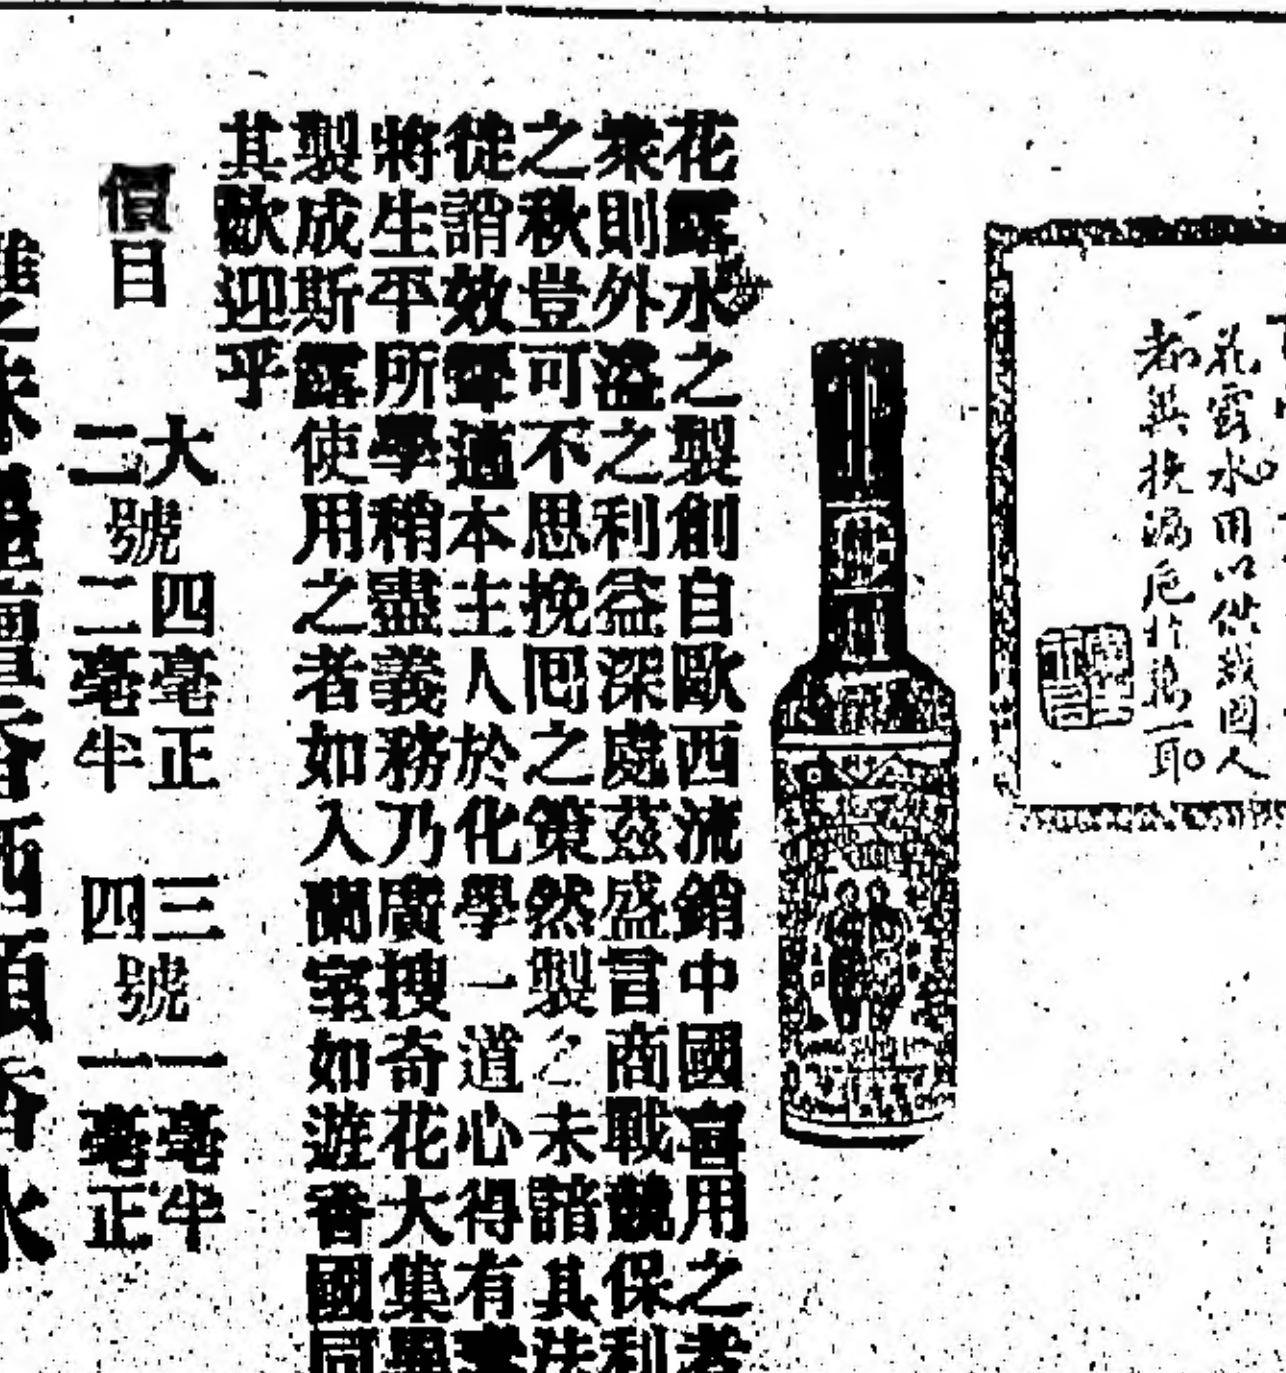 花雲水用以供我國人
者無挽漏巵於萬一耳
花露水之製創自歐西流銷中國喜用之者
衆則外溢之利益深處茲盛言商戰競保利
之秋豈可不思挽囘之策然製之未諳其法
徒誚效顰適本主人於化學一道心得有
將生平所學稍盡義務乃廣搜奇花大集異
製成斯露使用之者如入蘭室如遊香國同
其歡迎乎
價目
大號四毫正
二號二毫半
三號一毫半
四號一毫正